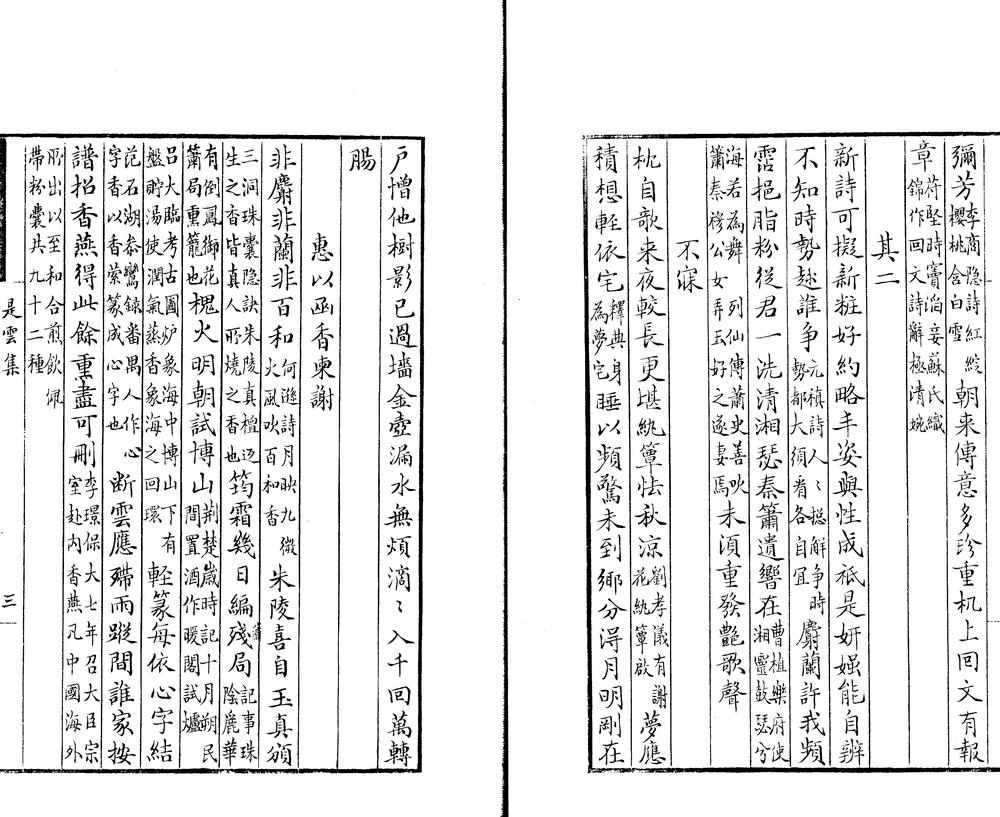 彌芳李商隱詩紅綬櫻桃含白雪朝来傳意多珍重机上回文有報
章苻堅時竇滔妾蘇氏織錦作回文詩辭極清婉
其二
新詩可擬新粧好約略手姿與性成祇是妍媸能自辨
不知時勢趂誰争元稹詩人〻總解争時勢都大須看各自宜麝蘭許我頻
霑挹脂粉從君一洗清湘瑟秦簫遺響在曹植樂府使湘靈鼓瑟兮
海若為舞列仙傳蕭史善吹簫秦穆公女弄玉好之遂妻焉未須重發艶歌聲
不寐
枕自歌来夜較長更堪紈簟怯秋涼劉孝儀有謝花紈簟啟夢應
積想輕依宅釋典身為夢宅睡以頻驚未到鄉分得月明剛在
戶憎他樹影已過墻金壺漏水無煩滴〻入千回萬轉
腸
惠以函香柬謝
非麝非蘭非百和何遜詩月映九微火風吹百和香朱陵喜自玉真頒
三洞珠囊隐訣朱陵真檀迺生之香皆真人所燒之香也筠霜幾日編殘局簫局記事珠陰麗華
有倒鳳御花簫局熏籠也槐火明朝試博山荆楚歲時記十月朔民間置酒作暖閣試爐
呂大臨考古圖炉象海中博山下有盤貯湯使潤氣蒸香象海之回環輕篆每依心字結
范石湖驂鸞録番禺人作心字香以香縈篆成心字也断雲應殢雨蹤間誰家按
譜招香燕得此餘重盡可刪李璟保大七年召大臣宗室赴内香燕凡中國海外
所出以至和合煎飲佩帶粉囊共九十二種
是雲集
三